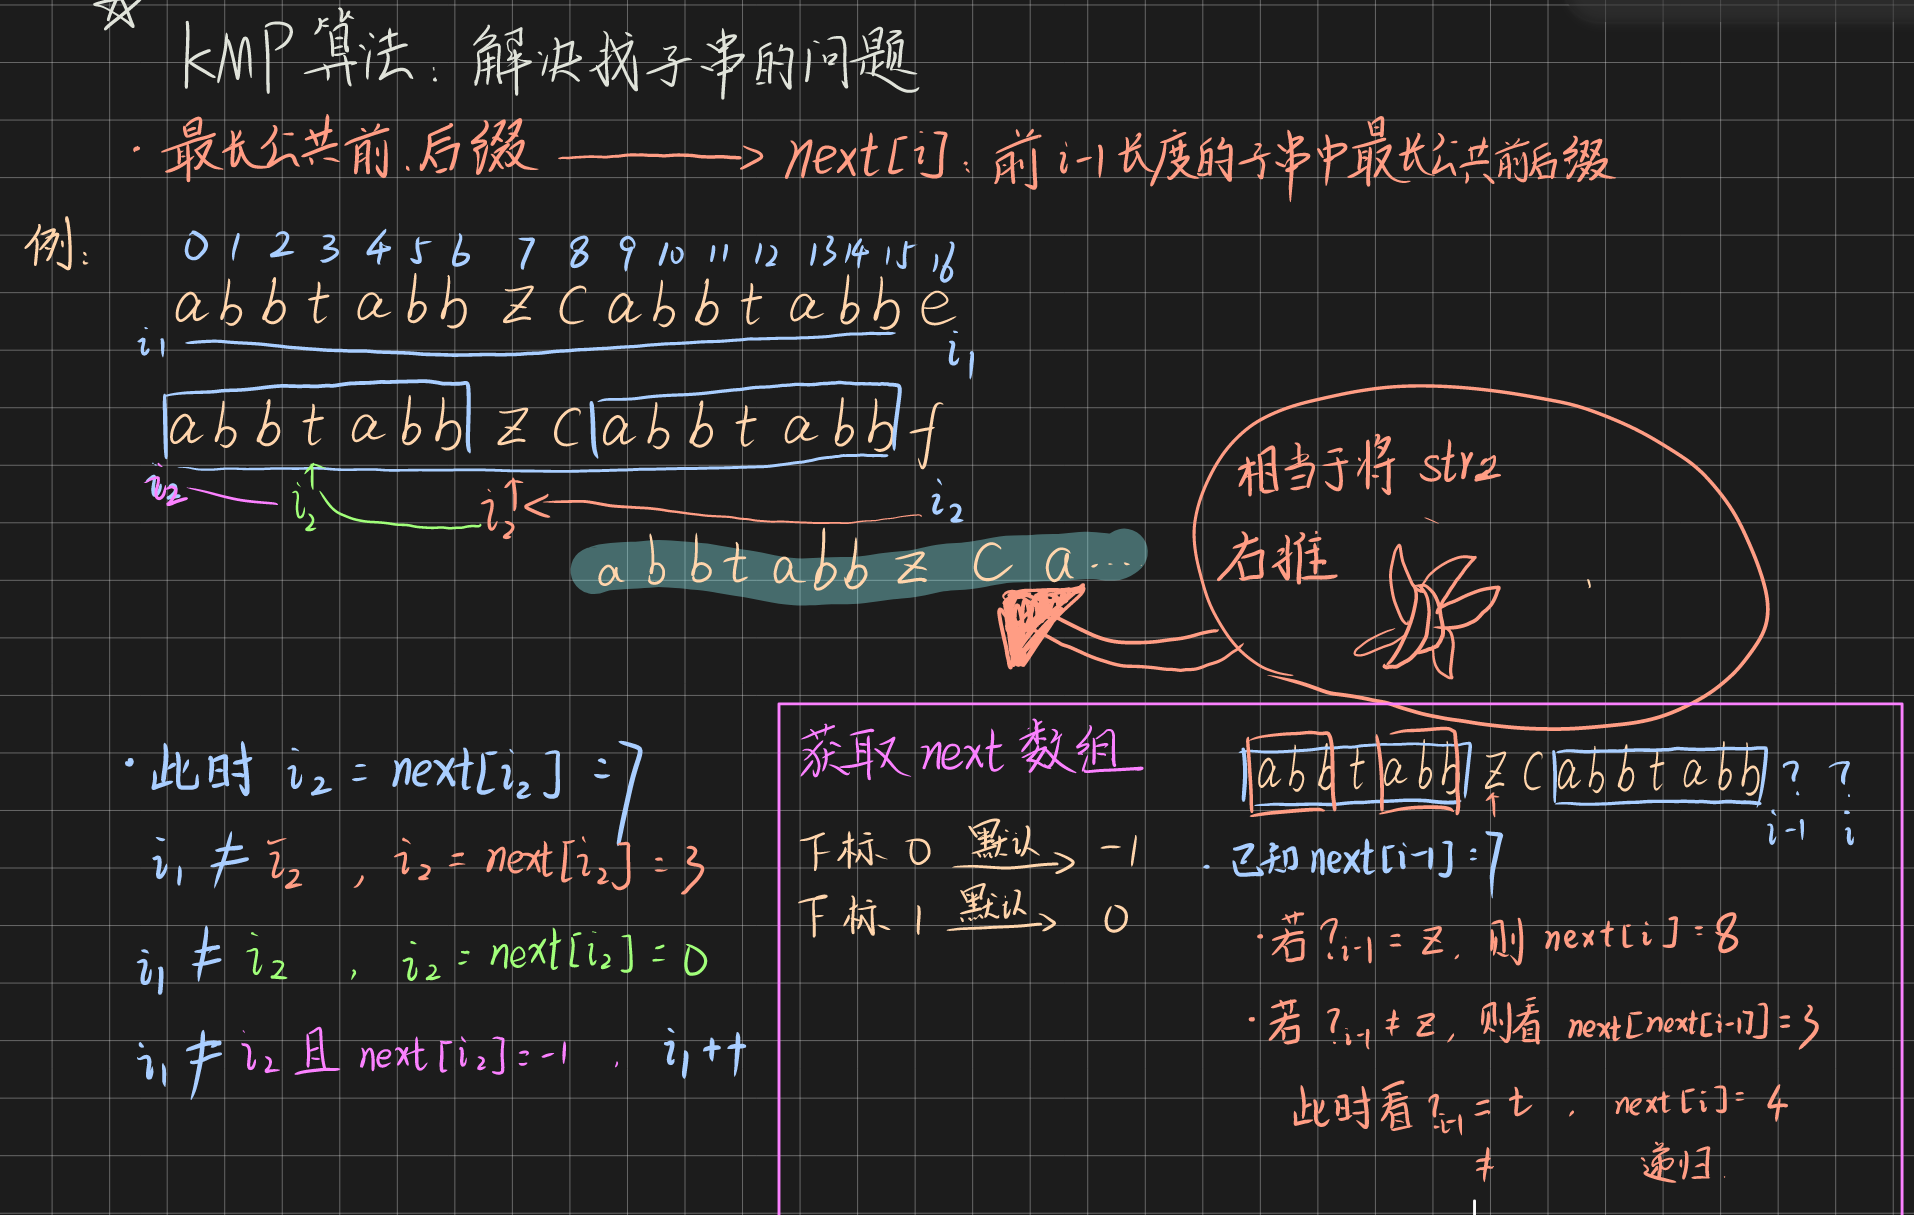 KMP算法：解决找子串的问题
·最长公共前.后缀 ——> next[i]：前i-1长度的子串中最长公共前后缀
例：
0 1 2 3 4 5 6 7 8 9 10 11 12 13 14 15 16
a b b t a b b z c a b b t a b b e
i1 i1
a b b t a b b z c a b b t a b b f
i2 i2 i2 i2
a b b t a b b z c a ...
相当于将 str2
右推
·此时 i2 = next[i2] = 7
i1 ≠ i2 , i2 = next[i2] = 3
i1 ≠ i2 , i2 = next[i2] = 0
i1 ≠ i2 且 next[i2] = -1 . i1++
获取 next 数组
下标 0 默认 -> -1
下标 1 默认 -> 0
a b b t a b b z c a b b t a b b ? ?
i-1 i
·已知 next[i-1] = 7
·若 ?i-1 = z, 则 next[i] = 8
·若 ?i-1 ≠ z, 则看 next[next[i-1]] = 3
此时看 ?i-1 = t . next[i] = 4
≠ 递归